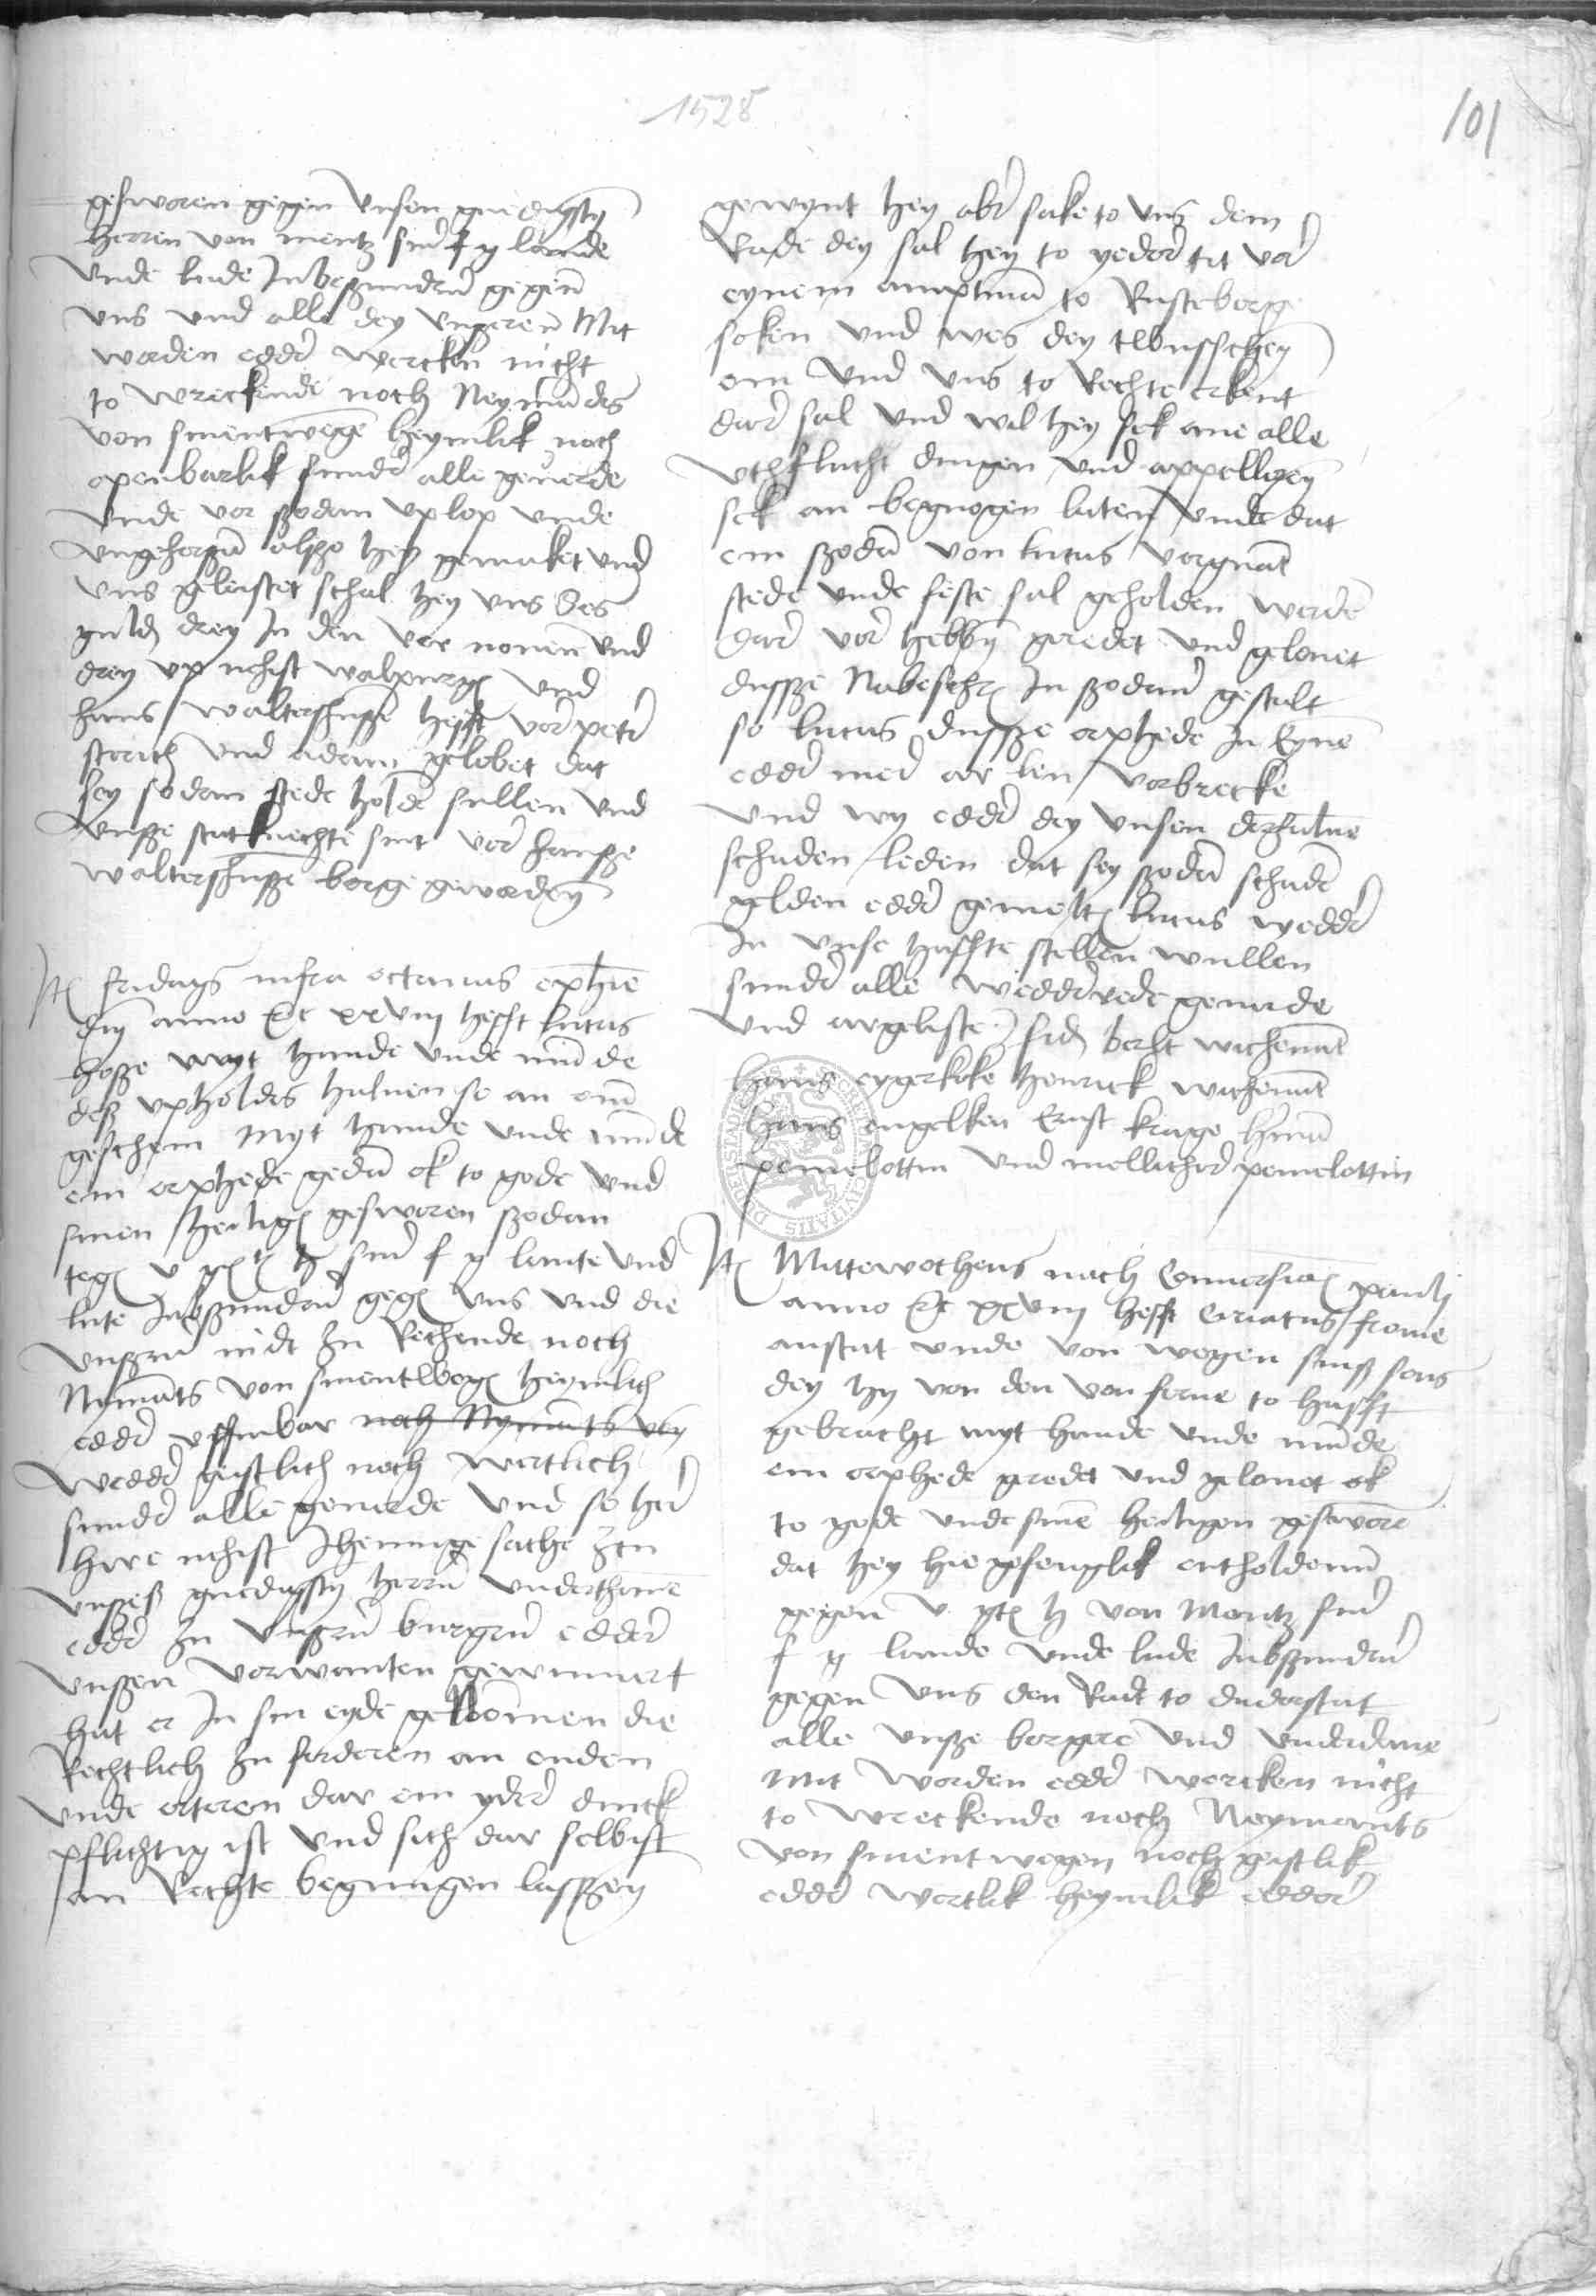 1528
101
gesworen gegen unsen gnedigsten
herren von mentz siner f g lande
unde lude Inbeßunderen gegen
uns und alle dey unseren Mit
worden edder wercken nicht
to wreckende noch Neymandes
von sinentwegen heymlik noch
openbarlik sunder alle geverde
unde vor ßodan uplop unde
ungehorßam alßo hey gemaket und
uns geleistet schal hey uns ses
guld drey In den vor nomen und
drey up nehist walpurg und
hans waltershuße hefft vor peter
storich und adam gelobet dat
sey sodan stede holden sullen und
unße statknechte sint vor hanße
waltershuße borge geworden
It fridags infra octavas epiphanie
dni anno etc xxviij hefft lucas
hoße myt hande unde munde
deß upholdes halven so an om
geschein Myt hande unde munde
ein orphede gedan ok to gode und
sinen heiligen gesworen ßodan
tegen u gst h siner f g lante und
lute Inbßunderen gegen uns und die
unßern nidt zu Rechende noch
Nymants von sinentwegen heymlich
edder uffinbar noch Nymants von
wedder geistlich noch wertlich
sunder alle geverde und so her
hire nehist Jhennige sache zcu
unßeß gnedigsten herren underthanen
edder zu unßern burgern edder
unßen vorwanten gewunnert
hat er In sin eyde genomen die
Rechtlich zu forderen an enden
unde orteren dar ein yder dinck
pflichtig ist und sich dar selbist
an Rechte begnugen laßßen
gewynt hey aber sake to uns dem
Rade dey sal hey to yeder tit vor
eynem amptman to Rusteberge
soken und wes dey twusschen
om und uns to Rechte erkent
dar sal und wil hey sek ane alle
uthflucht dingen und appelleren
sek an benogen laten unde dat
ein ßodan von lucas vorgnant
stede unde feste sal geholden werden
dar vor hebben geredet und gelovet
dusße Nabeschr In ßodaner gestalt
so lucas dusße orphede In Eynem
edder mer ar ken vorbrecke
und wy edder dey unsen derhalven
schaden leden dat sey ßodan schaden
gelden edder gemelten lucas wedder
In unse haffte stellen wullen
sunder alle wedderrede geverde
und argeliste sid berlt wichenant
hans eygerkoke henrick wichenant
hans engelken Ernst krage herman
pomelottin und mellicher pomelottin
It Mittewochens nach Conversionis pauli
anno etc xxviij hefft Ciriacus frome
anstat unde von wegen sinß sons
dey hy von den von ferne to hafft
gebracht myt hande unde munde
ein orphede gredet und gelovet ok
to gode unde sinen heiligen gesworen
dat hey hie gefenglik entholden
gegen u gst h von Mentz siner
f g lande unde lude Inbßunderen
gegen uns den Radt to duderstat
alle unße borgere und underdane
Mit worden edder wercken nicht
to wreckende noch Neymants
von sinent wegen noch geistlik
edder wertlik heymlik edder